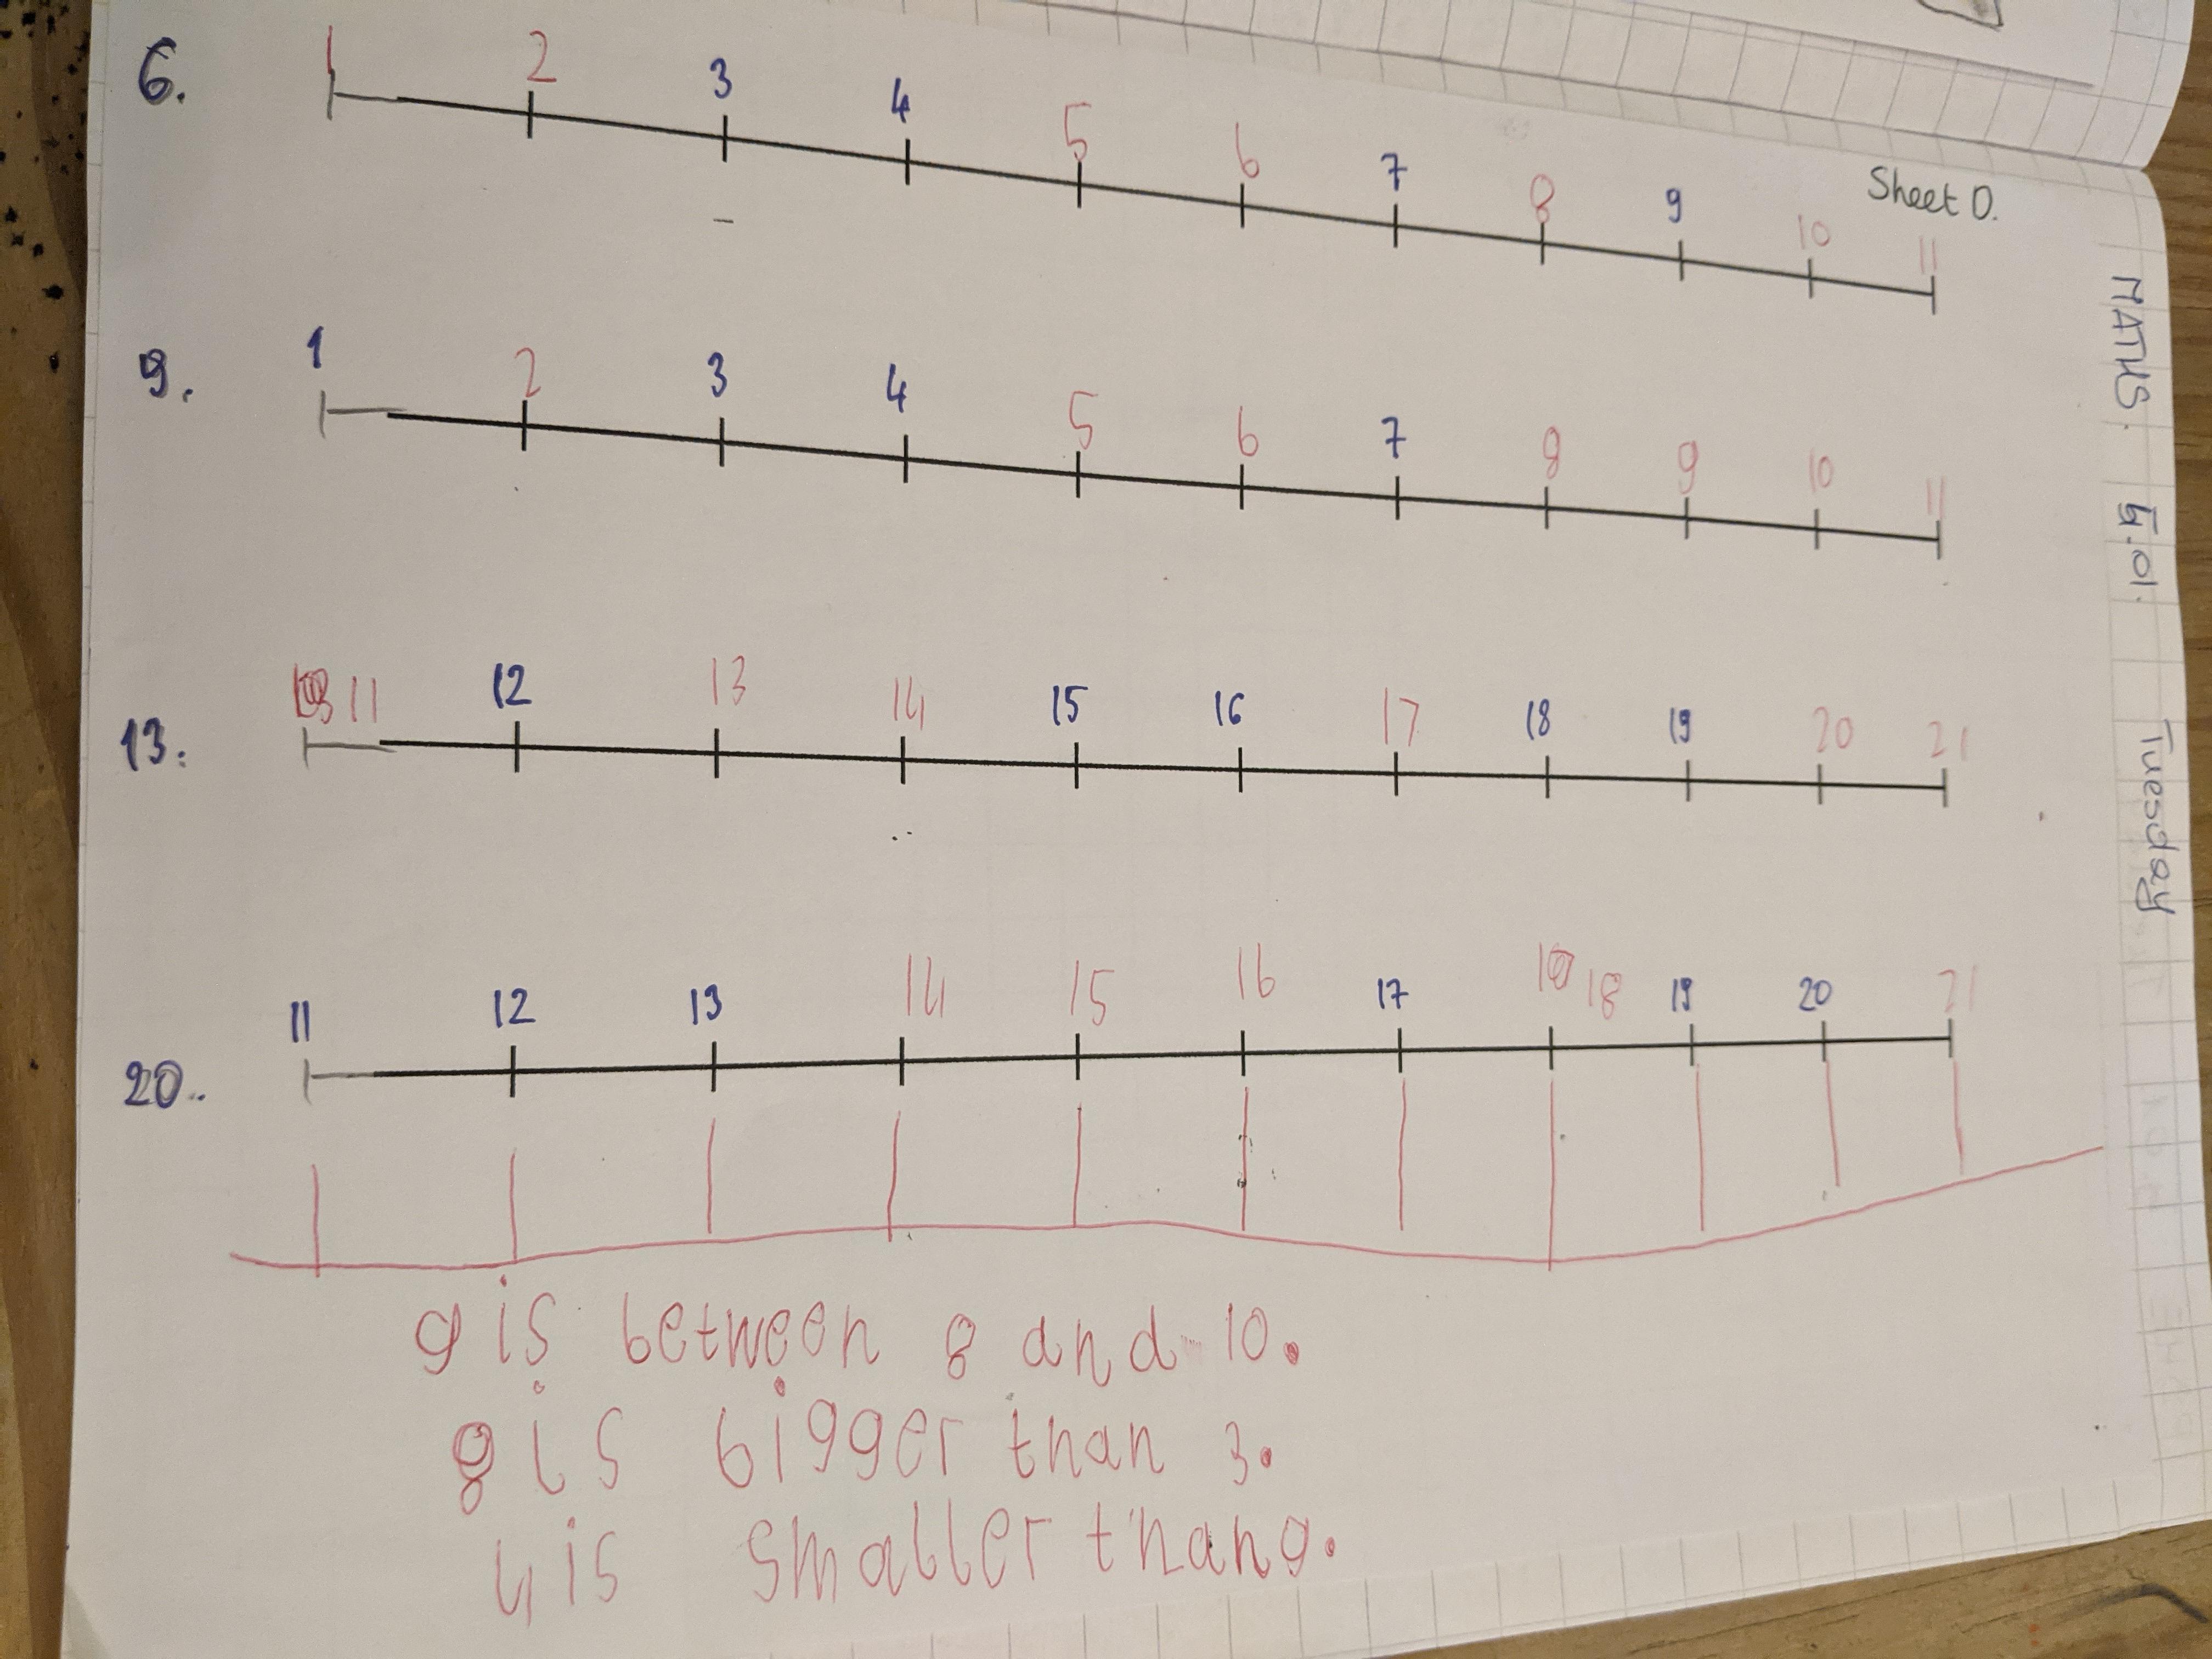 Sheet 0.
MATHS. 5.01. Tuesday
6. 1 2 3 4 5 6 7 8 9 10 11
9. 1 2 3 4 5 6 7 8 9 10 11
13. 11 12 13 14 15 16 17 18 19 20 21
20. 11 12 13 14 15 16 17 18 19 20 21
9 is between 8 and 10.
8 is bigger than 3.
4 is smaller than 9.